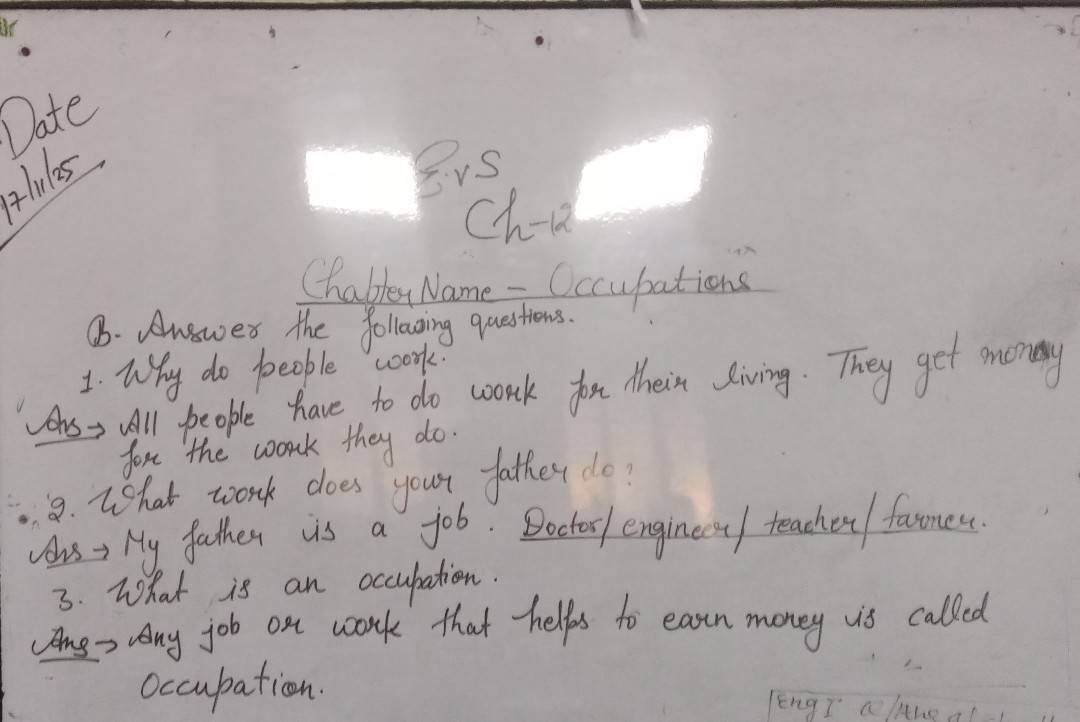 Date
17/11/25
E.vS
Ch-12
Chapter Name - Occupations
B. Answer the following questions.
1. Why do people work.
Ans → All people have to do work for their living. They get money
for the work they do.
2. What work does your father do?
Ans → My father is a job. Doctor/engineer/teacher/farmer.
3. What is an occupation.
Ans → Any job or work that helps to earn money is called
Occupation.